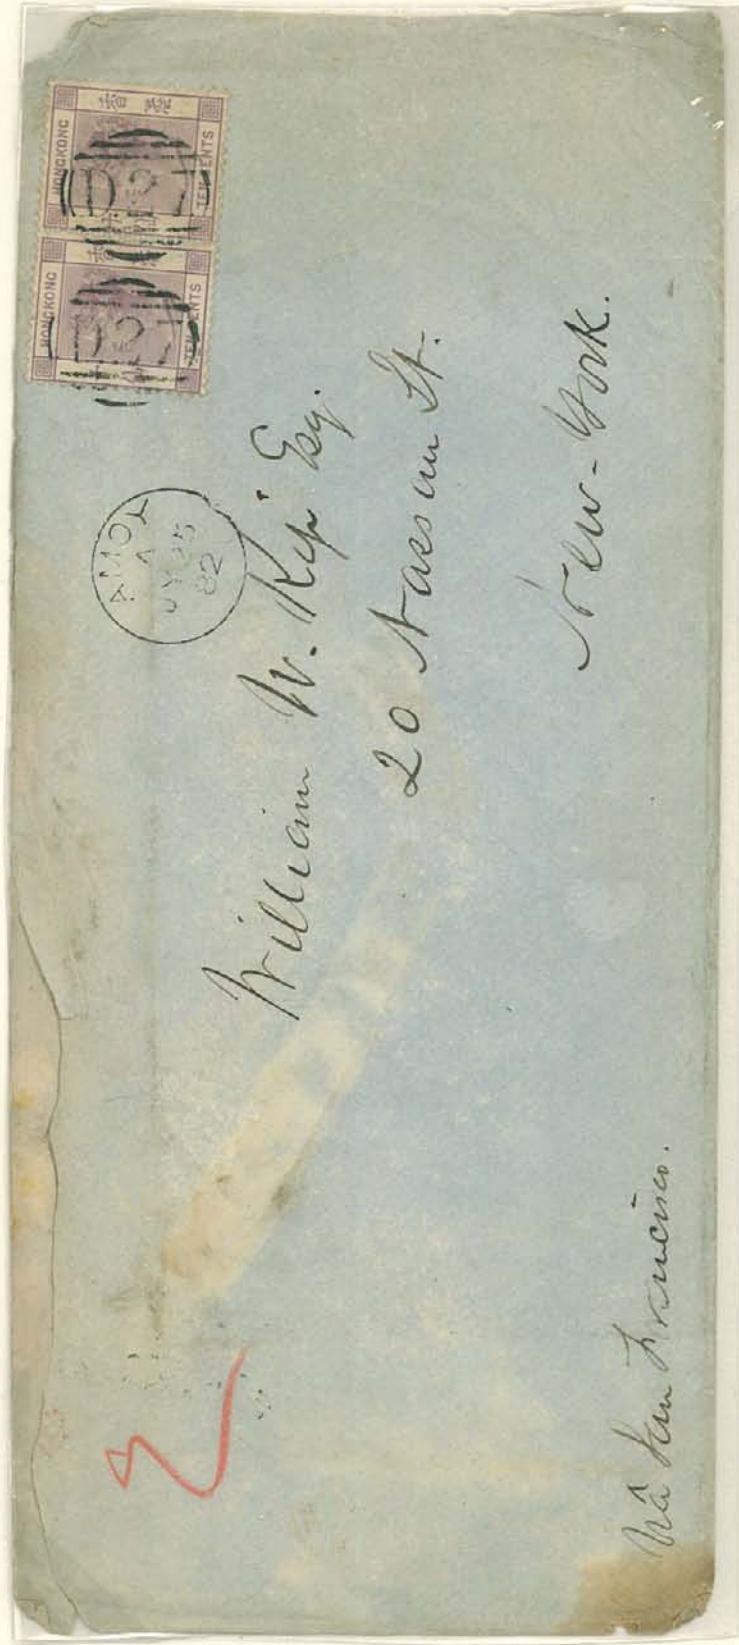 HONGKONG
TEN CENTS
D27
HONGKONG
TEN CENTS
D27
AMOY
A
JY 25
82
William W. Kip Esq.
20 Nassau St.
New-York.
Viâ San Francisco.
2